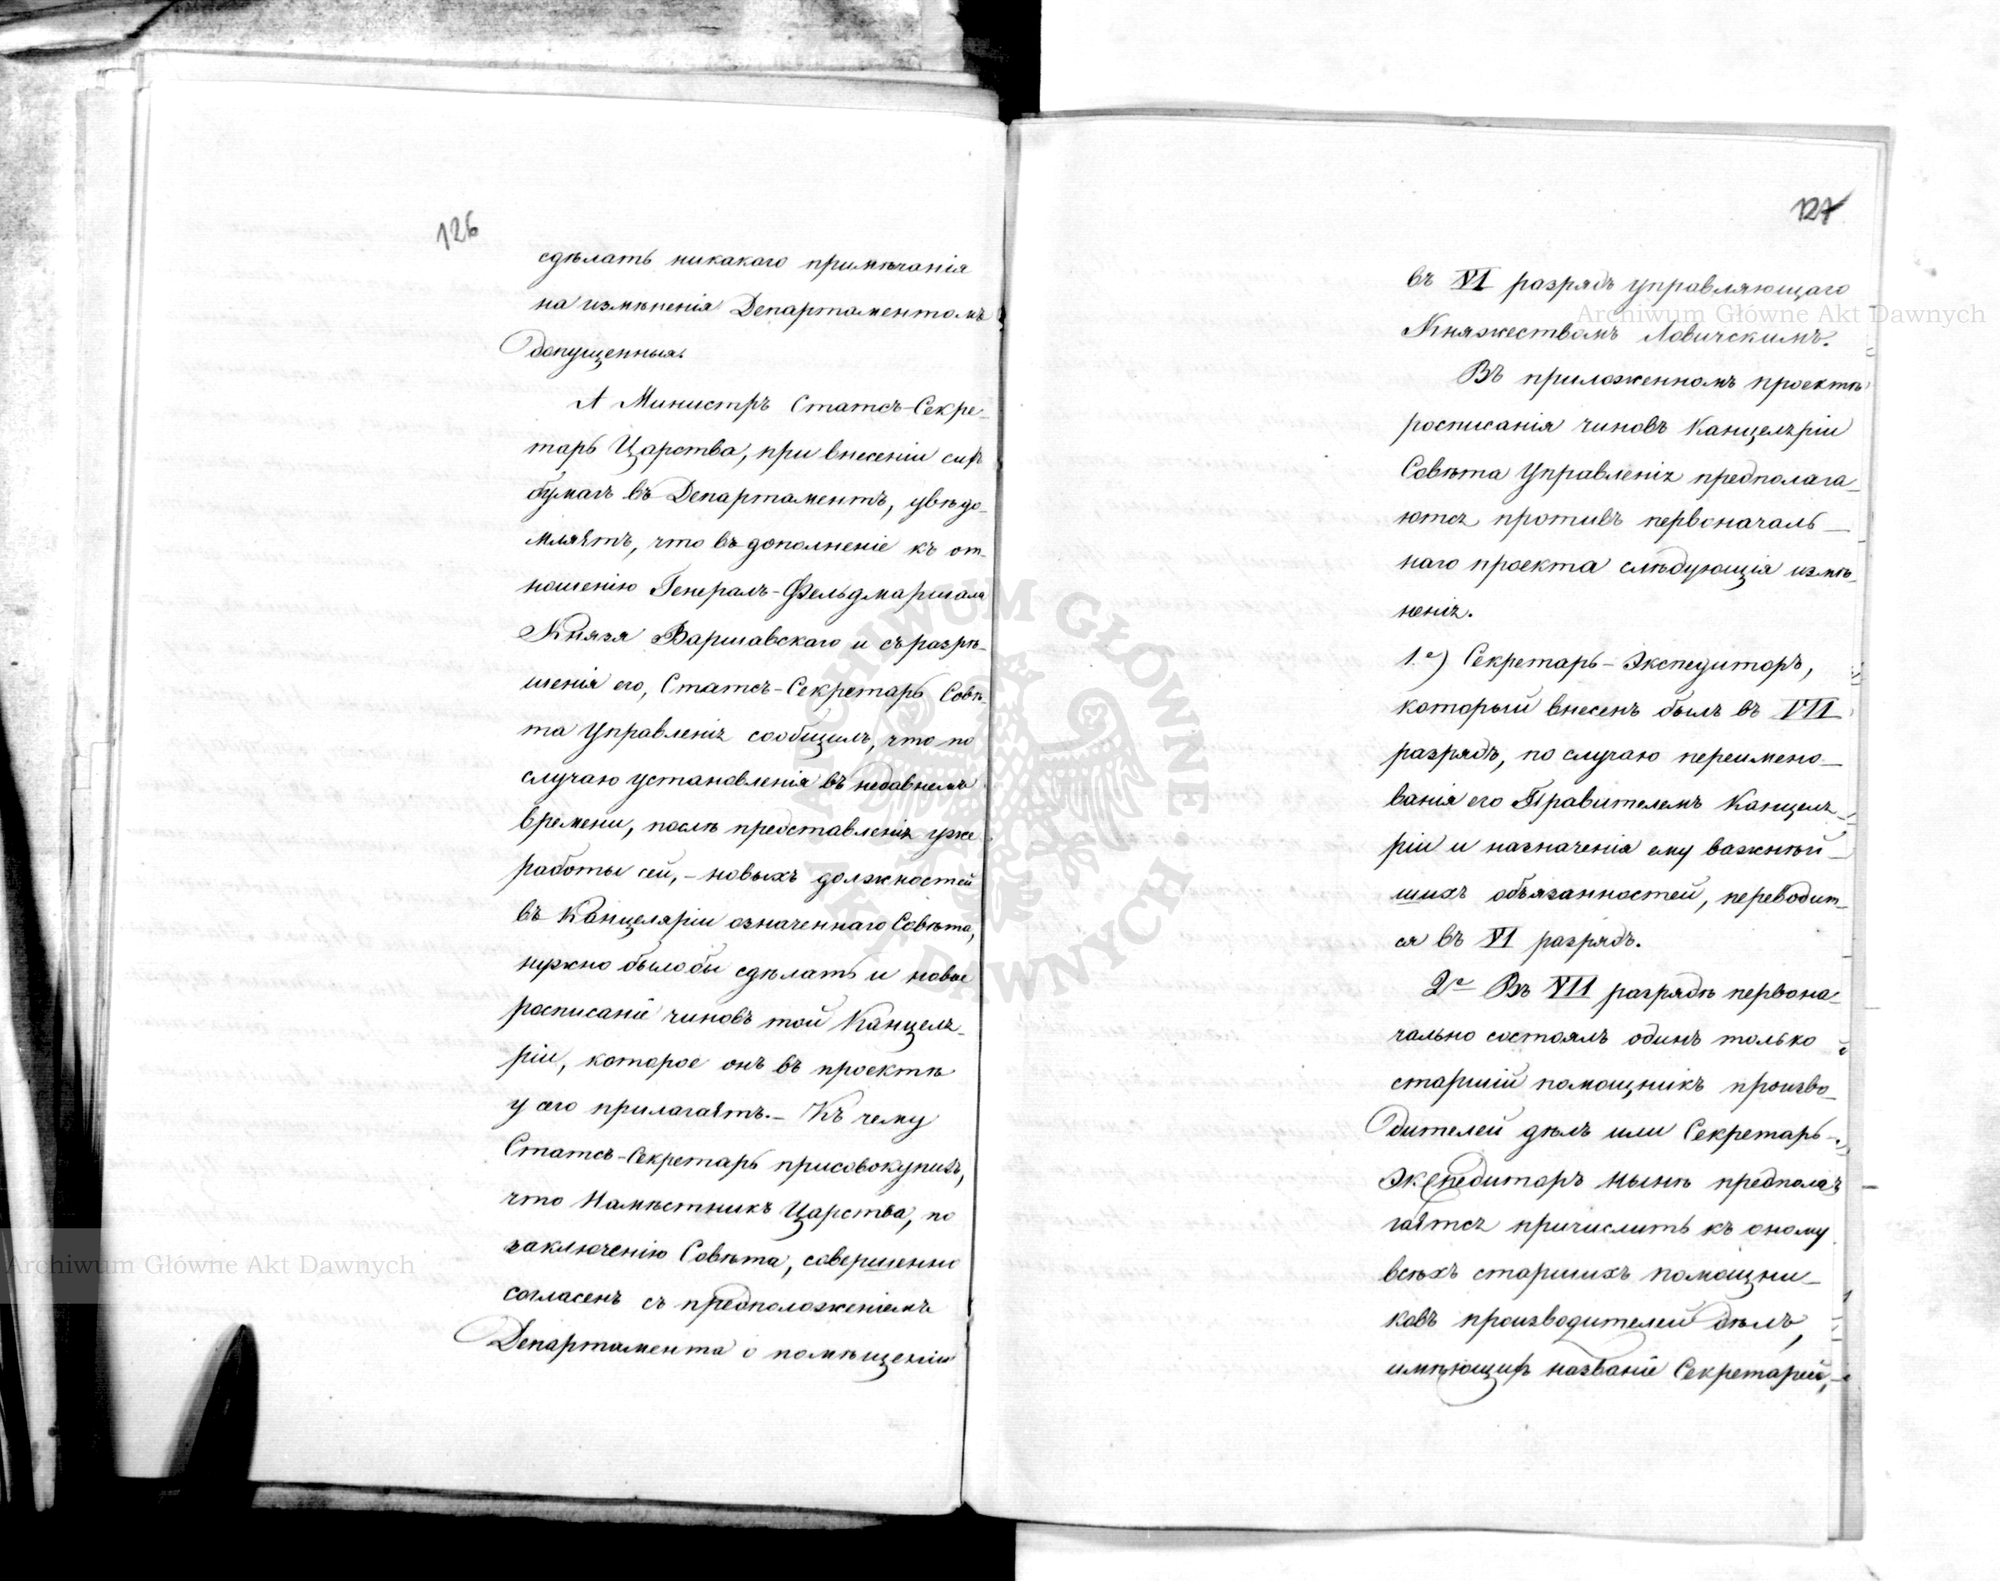 126
сдѣлать никакого примѣчанія
на измѣненія Департаментомъ
допущенныя.
А Министръ Статсъ-Секре-
тарь Царства, при внесеніи сихъ
бумагъ въ Департаментъ, увѣдо-
мляетъ, что въ дополненіе къ от-
ношенію Генералъ-Фельдмаршала
Князя Варшавскаго и съ разрѣ-
шенія его, Статсъ-Секретарь Совѣ-
та Управленія сообщилъ, что по
случаю установленія въ недавнемъ
времени, послѣ представленія уже
работы сей, - новыхъ должностей
въ Канцеляріи означеннаго Совѣта,
нужно было бы сдѣлать и новое
росписаніе чиновъ той Канцеля-
ріи, которое онъ въ проектѣ
у сего прилагаетъ. - Къ чему
Статсъ-Секретарь присовокупилъ,
что Намѣстникъ Царства, по
заключенію Совѣта, совершенно
согласенъ съ предположеніемъ
Департамента о помѣщеніи
127
въ VI разрядъ управляющаго
Княжествомъ Ловичскимъ.
Въ приложенномъ проектѣ
росписанія чиновъ Канцеляріи
Совѣта Управленія предполага-
ются противъ первоначаль-
наго проекта слѣдующія измѣ-
ненія.
1.е) Секретарь-Экспедиторъ,
который внесенъ былъ въ VII
разрядъ, по случаю переимено-
ванія его Правителемъ Канцеля-
ріи и назначенія ему важнѣй-
шихъ обязанностей, переводит-
ся въ VI разрядъ.
2е Въ VII разрядѣ первона-
чально состоялъ одинъ только
старшій помощникъ произво-
дителей дѣлъ или Секретарь-
Экспедиторъ нынѣ предпола-
гается причислить къ оному
всѣхъ старшихъ помощни-
ковъ производителей дѣлъ,
имѣющихъ названіе Секретарей,
Archiwum Główne Akt Dawnych
Archiwum Główne Akt Dawnych
ARCHIWUM GŁÓWNE AKT DAWNYCH